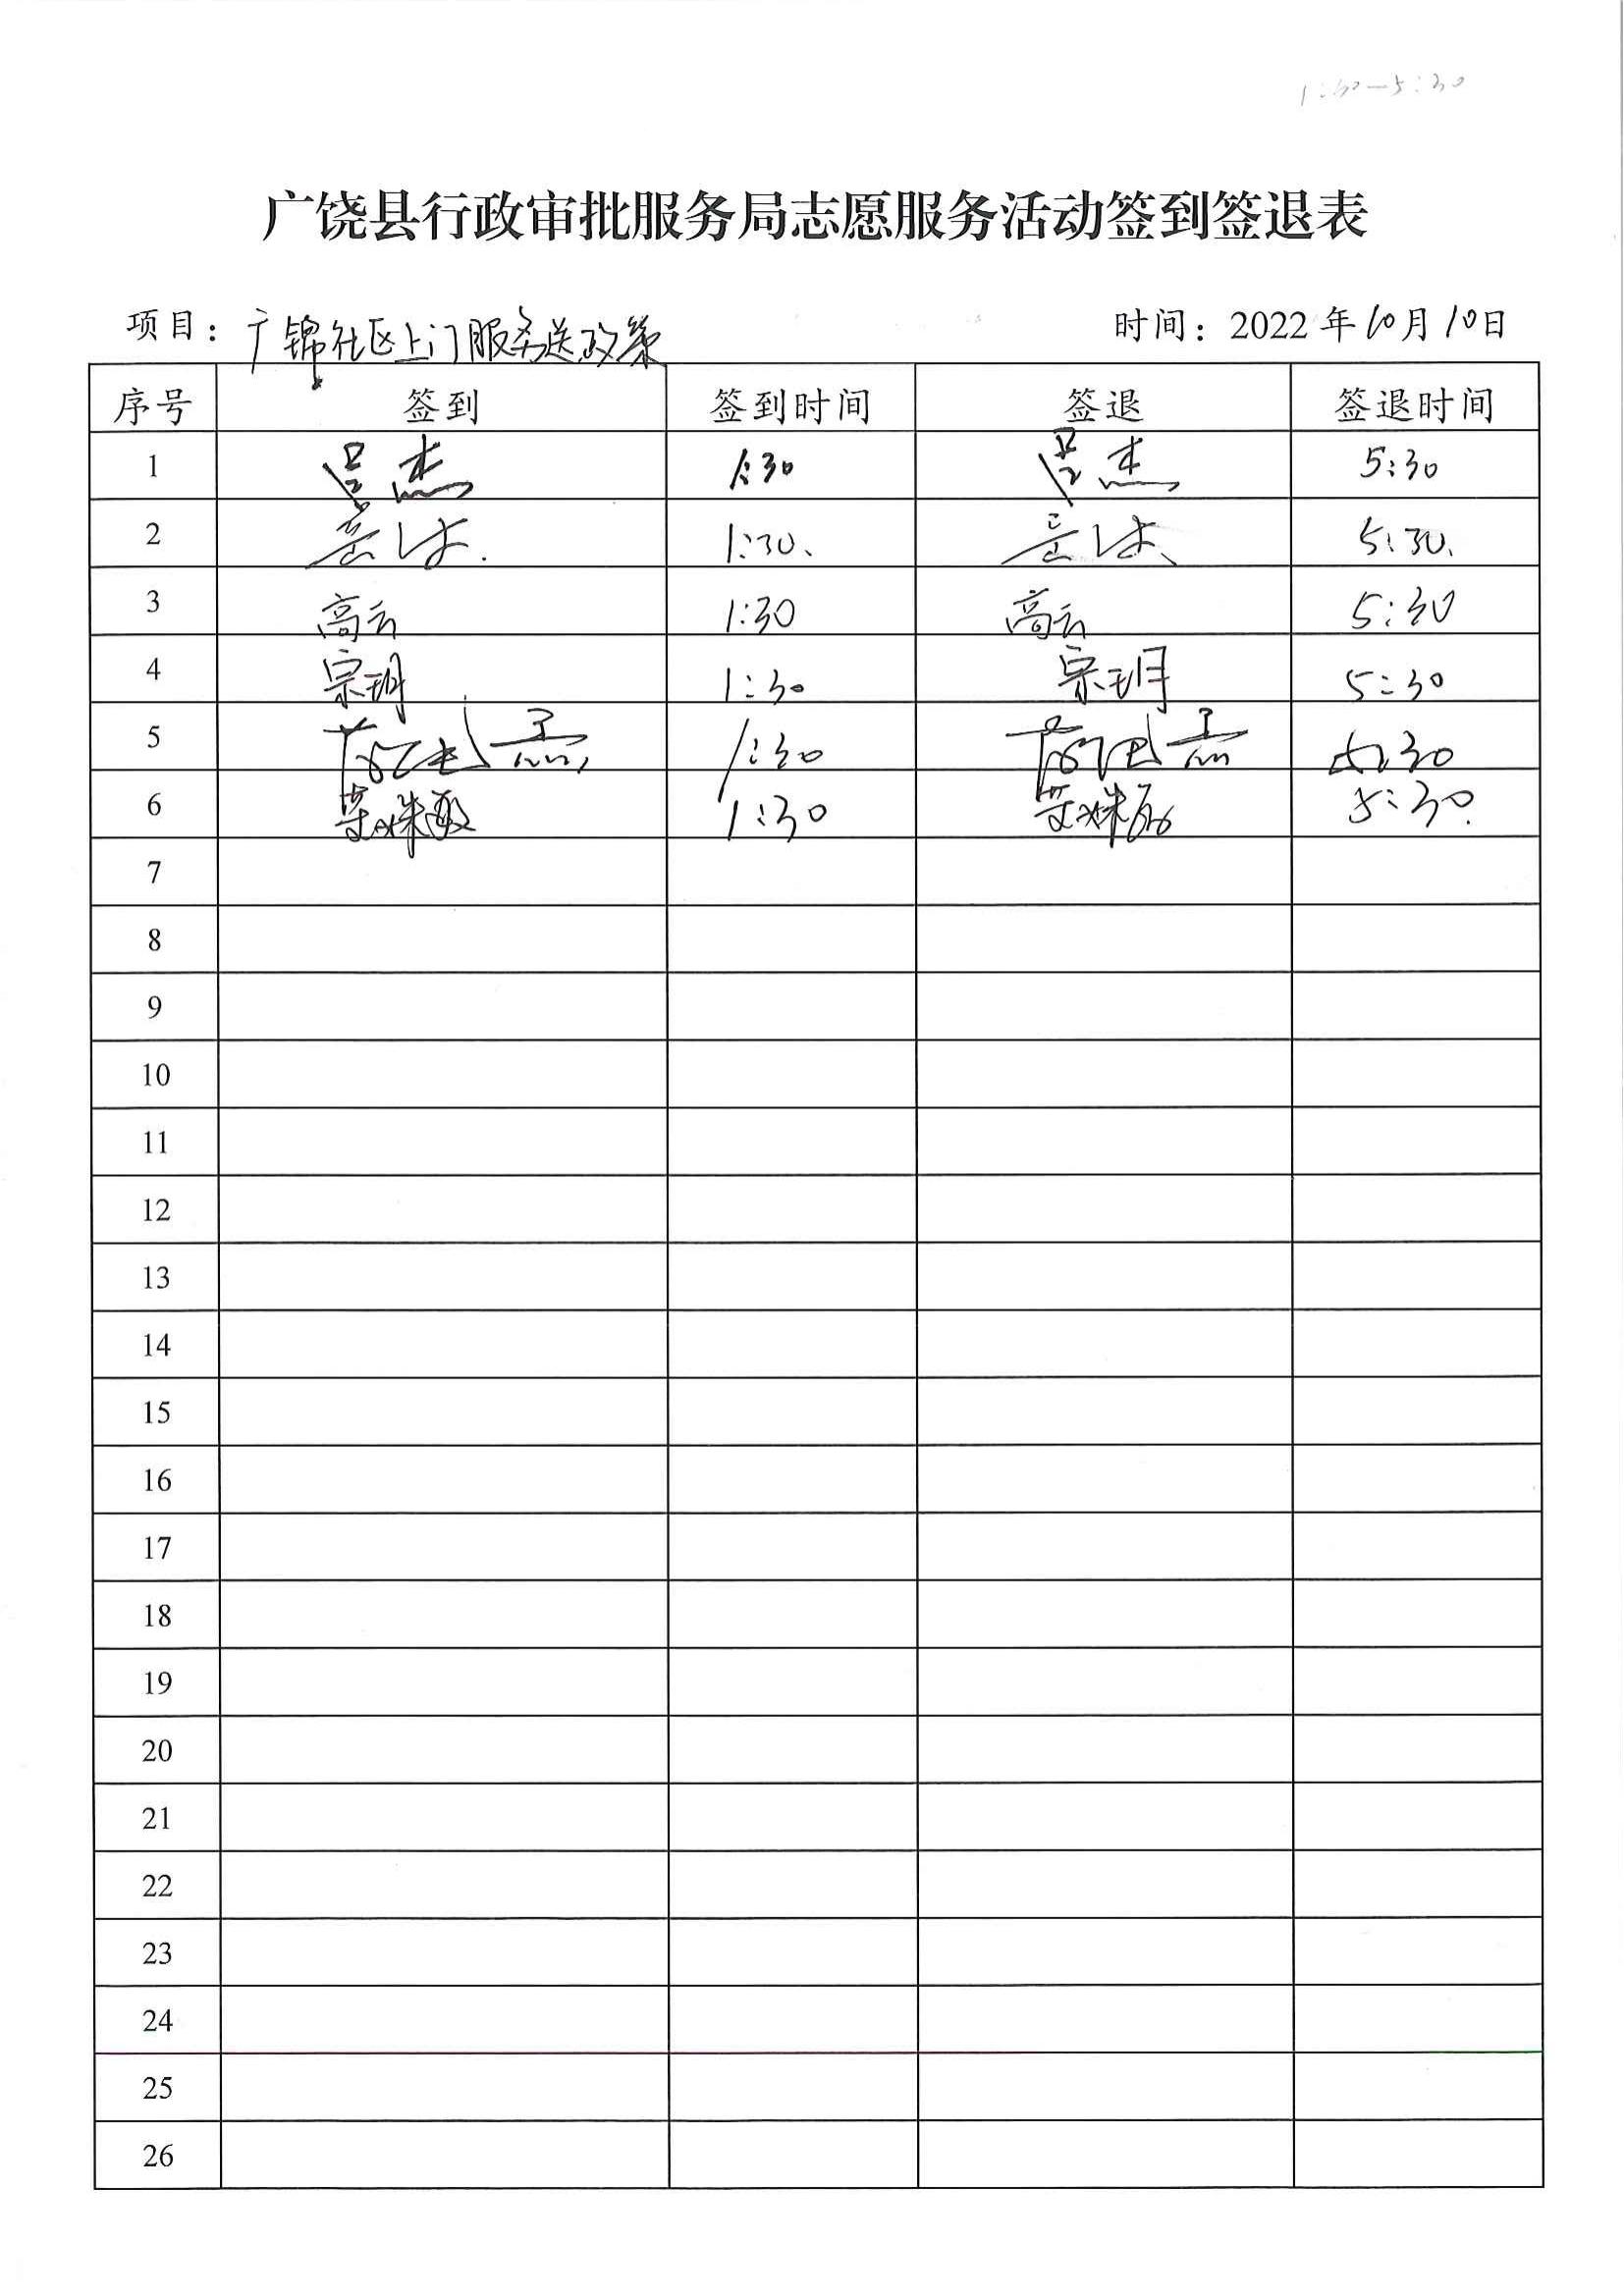 1:30—5:30
广饶县行政审批服务局志愿服务活动签到签退表
项目：广锦社区上门服务送政策 时间：2022年10月10日
序号 签到 签到时间 签退 签退时间
1 吕杰 1:30 吕杰 5:30
2 1:30、 5:30、
3 高云 1:30 高云 5:30
4 宗玥 1:30 宗玥 5:30
5 1:30 5:30
6 1:30 5:30
7
8
9
10
11
12
13
14
15
16
17
18
19
20
21
22
23
24
25
26